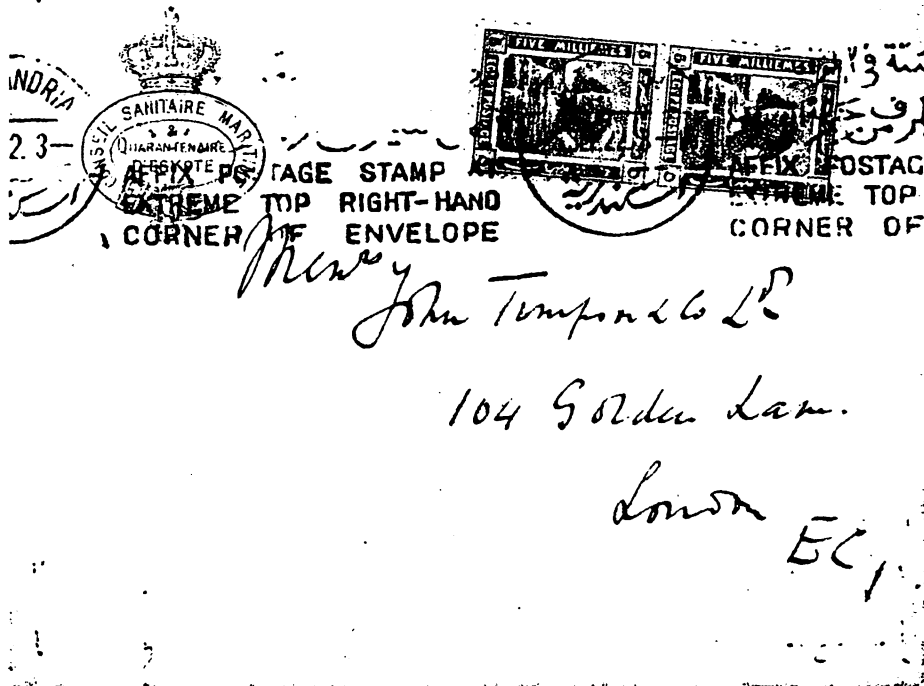 ANDRIA
2.3—
CONSEIL SANITAIRE MARITIME
&
QUARANTENAIRE
D'EGYPTE
FIVE MILLIEMES
FIVE MILLIEMES
AFFIX POSTAGE STAMP AT
EXTREME TOP RIGHT-HAND
CORNER OF ENVELOPE
AFFIX POSTAG
EXTREME TOP
CORNER OF
John Timpson & Co Ld
104 Golden Lane.
London
EC1